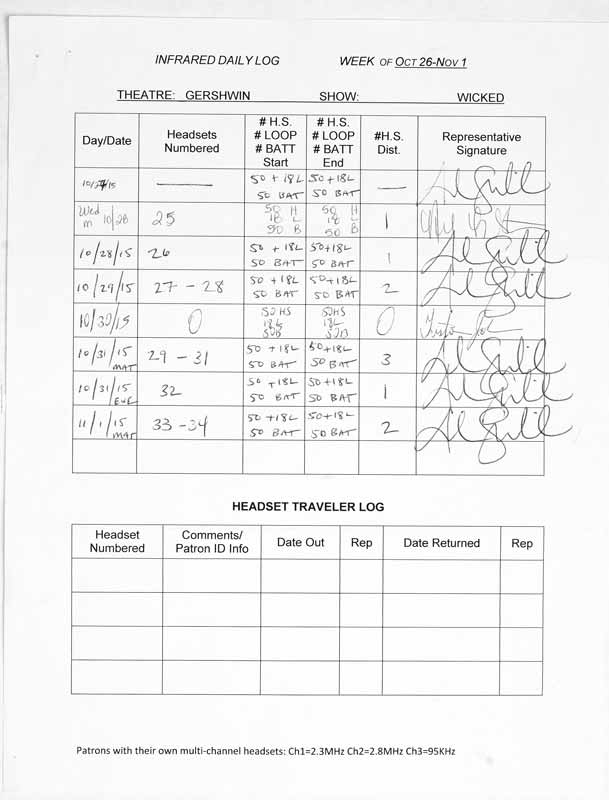 INFRARED DAILY LOG WEEK OF OCT 26-NOV 1
THEATRE: GERSHWIN SHOW: WICKED
Day/Date Headsets Numbered # H.S. # LOOP # BATT Start # H.S. # LOOP # BATT End #H.S. Dist. Representative Signature
10/27/15 — 50 + 18L 50 BAT 50+18L 50 BAT —
Wed m 10/28 25 50 H 18 L 50 B 50 H 18 L 50 B 1
10/28/15 26 50 + 18L 50 BAT 50+18L 50 BAT 1
10/29/15 27 - 28 50 + 18L 50 BAT 50+18L 50 BAT 2
10/30/15 0 50HS 18L 50B 50HS 18L 50B 0
10/31/15 MAT 29 - 31 50 + 18L 50 BAT 50+18L 50 BAT 3
10/31/15 EVE 32 50 + 18L 50 BAT 50+18L 50 BAT 1
11/1/15 MAT 33 - 34 50 + 18L 50 BAT 50+18L 50 BAT 2
HEADSET TRAVELER LOG
Headset Numbered Comments/ Patron ID Info Date Out Rep Date Returned Rep
Patrons with their own multi-channel headsets: Ch1=2.3MHz Ch2=2.8MHz Ch3=95KHz